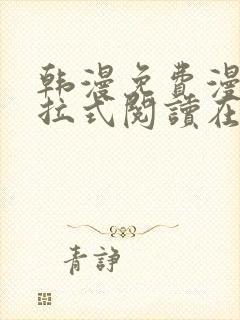 韩漫免费漫
拉式阅讀在
青諍